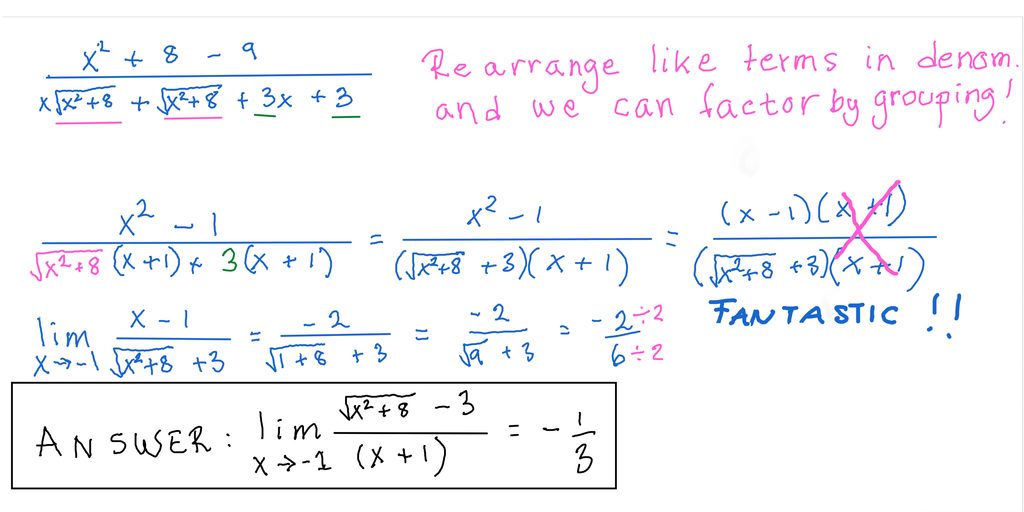 x² + 8 - 9
x√x²+8 + √x²+8 + 3x + 3
Rearrange like terms in denom.
and we can factor by grouping!
x² - 1 / √x²+8 (x+1) + 3(x+1) = x² - 1 / (√x²+8 + 3)(x+1) = (x-1)(x+1) / (√x²+8 + 3)(x+1)
FANTASTIC !!
lim x→-1 x-1 / √x²+8 + 3 = -2 / √1+8 + 3 = -2 / √9 + 3 = -2÷2 / 6÷2
ANSWER: lim x→-1 √x²+8 - 3 / (x+1) = - 1/3